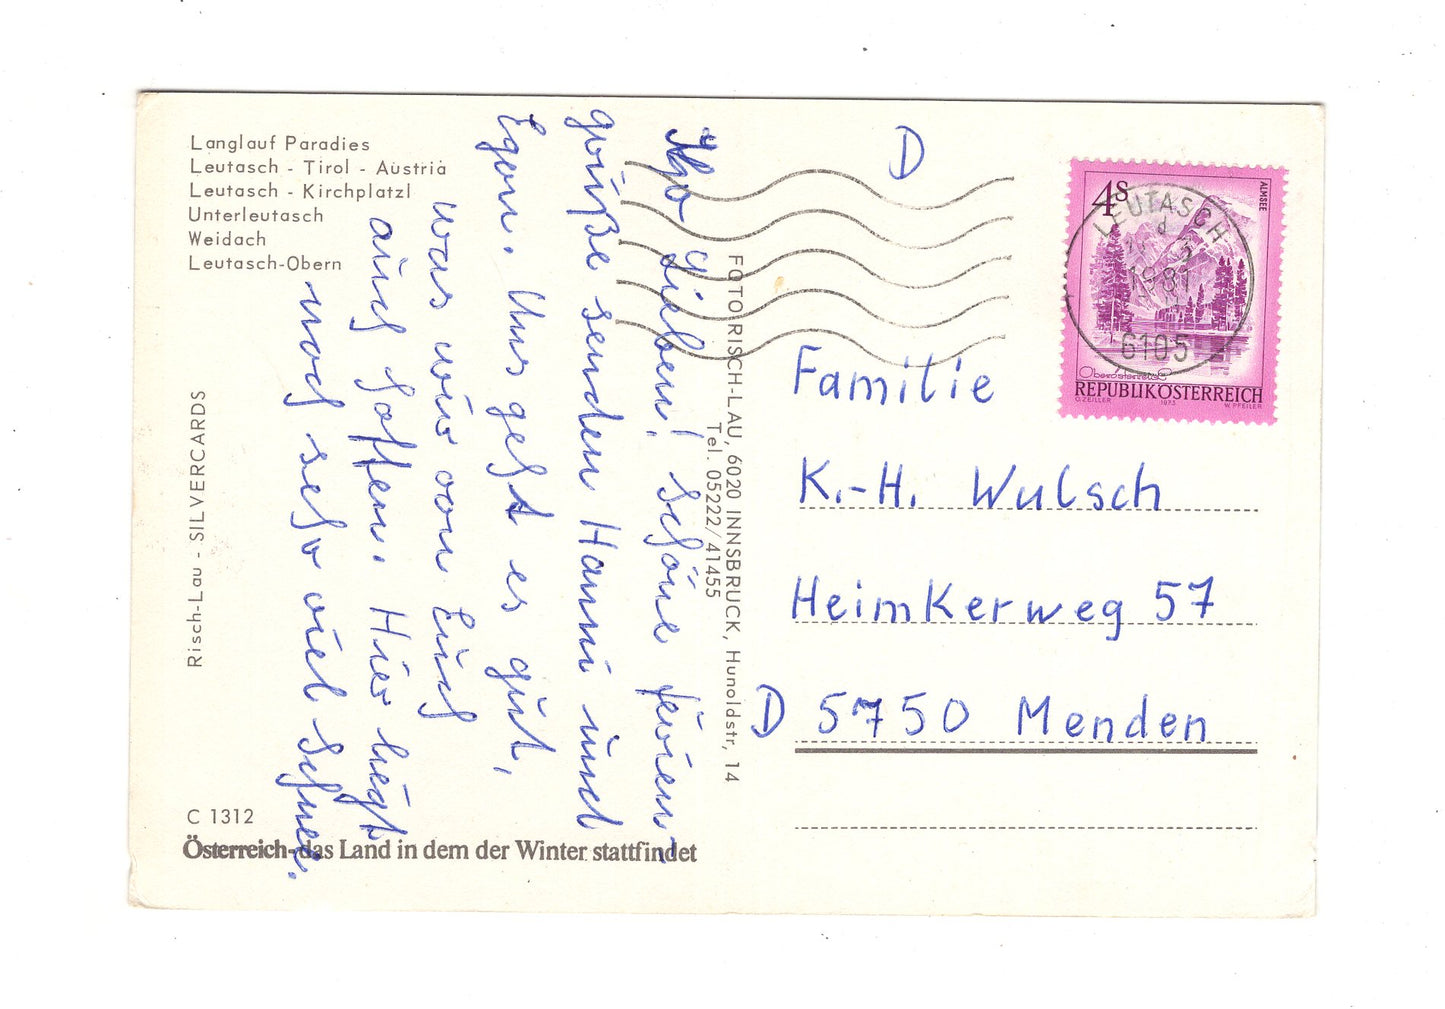 Langlauf Paradies
Leutasch - Tirol - Austria
Leutasch - Kirchplatzl
Unterleutasch
Weidach
Leutasch-Obern
Risch-Lau - SILVERCARDS
C 1312
Österreich-das Land in dem der Winter stattfindet
FOTO RISCH-LAU, 6020 INNSBRUCK, Hunoldstr. 14
Tel. 05222/41455
Ihr Lieben! Schöne Ferien-
grüße senden Hanni und
Egon. Uns geht es gut,
was wir von Euch
auch hoffen. Hier liegt
noch sehr viel Schnee.
D
4s
ALMSEE
Oberösterreich
REPUBLIK ÖSTERREICH
O. ZEILER 1973 W. PFEILER
LEUTASCH
6105
Familie
K.-H. Wulsch
Heimkerweg 57
D 5750 Menden